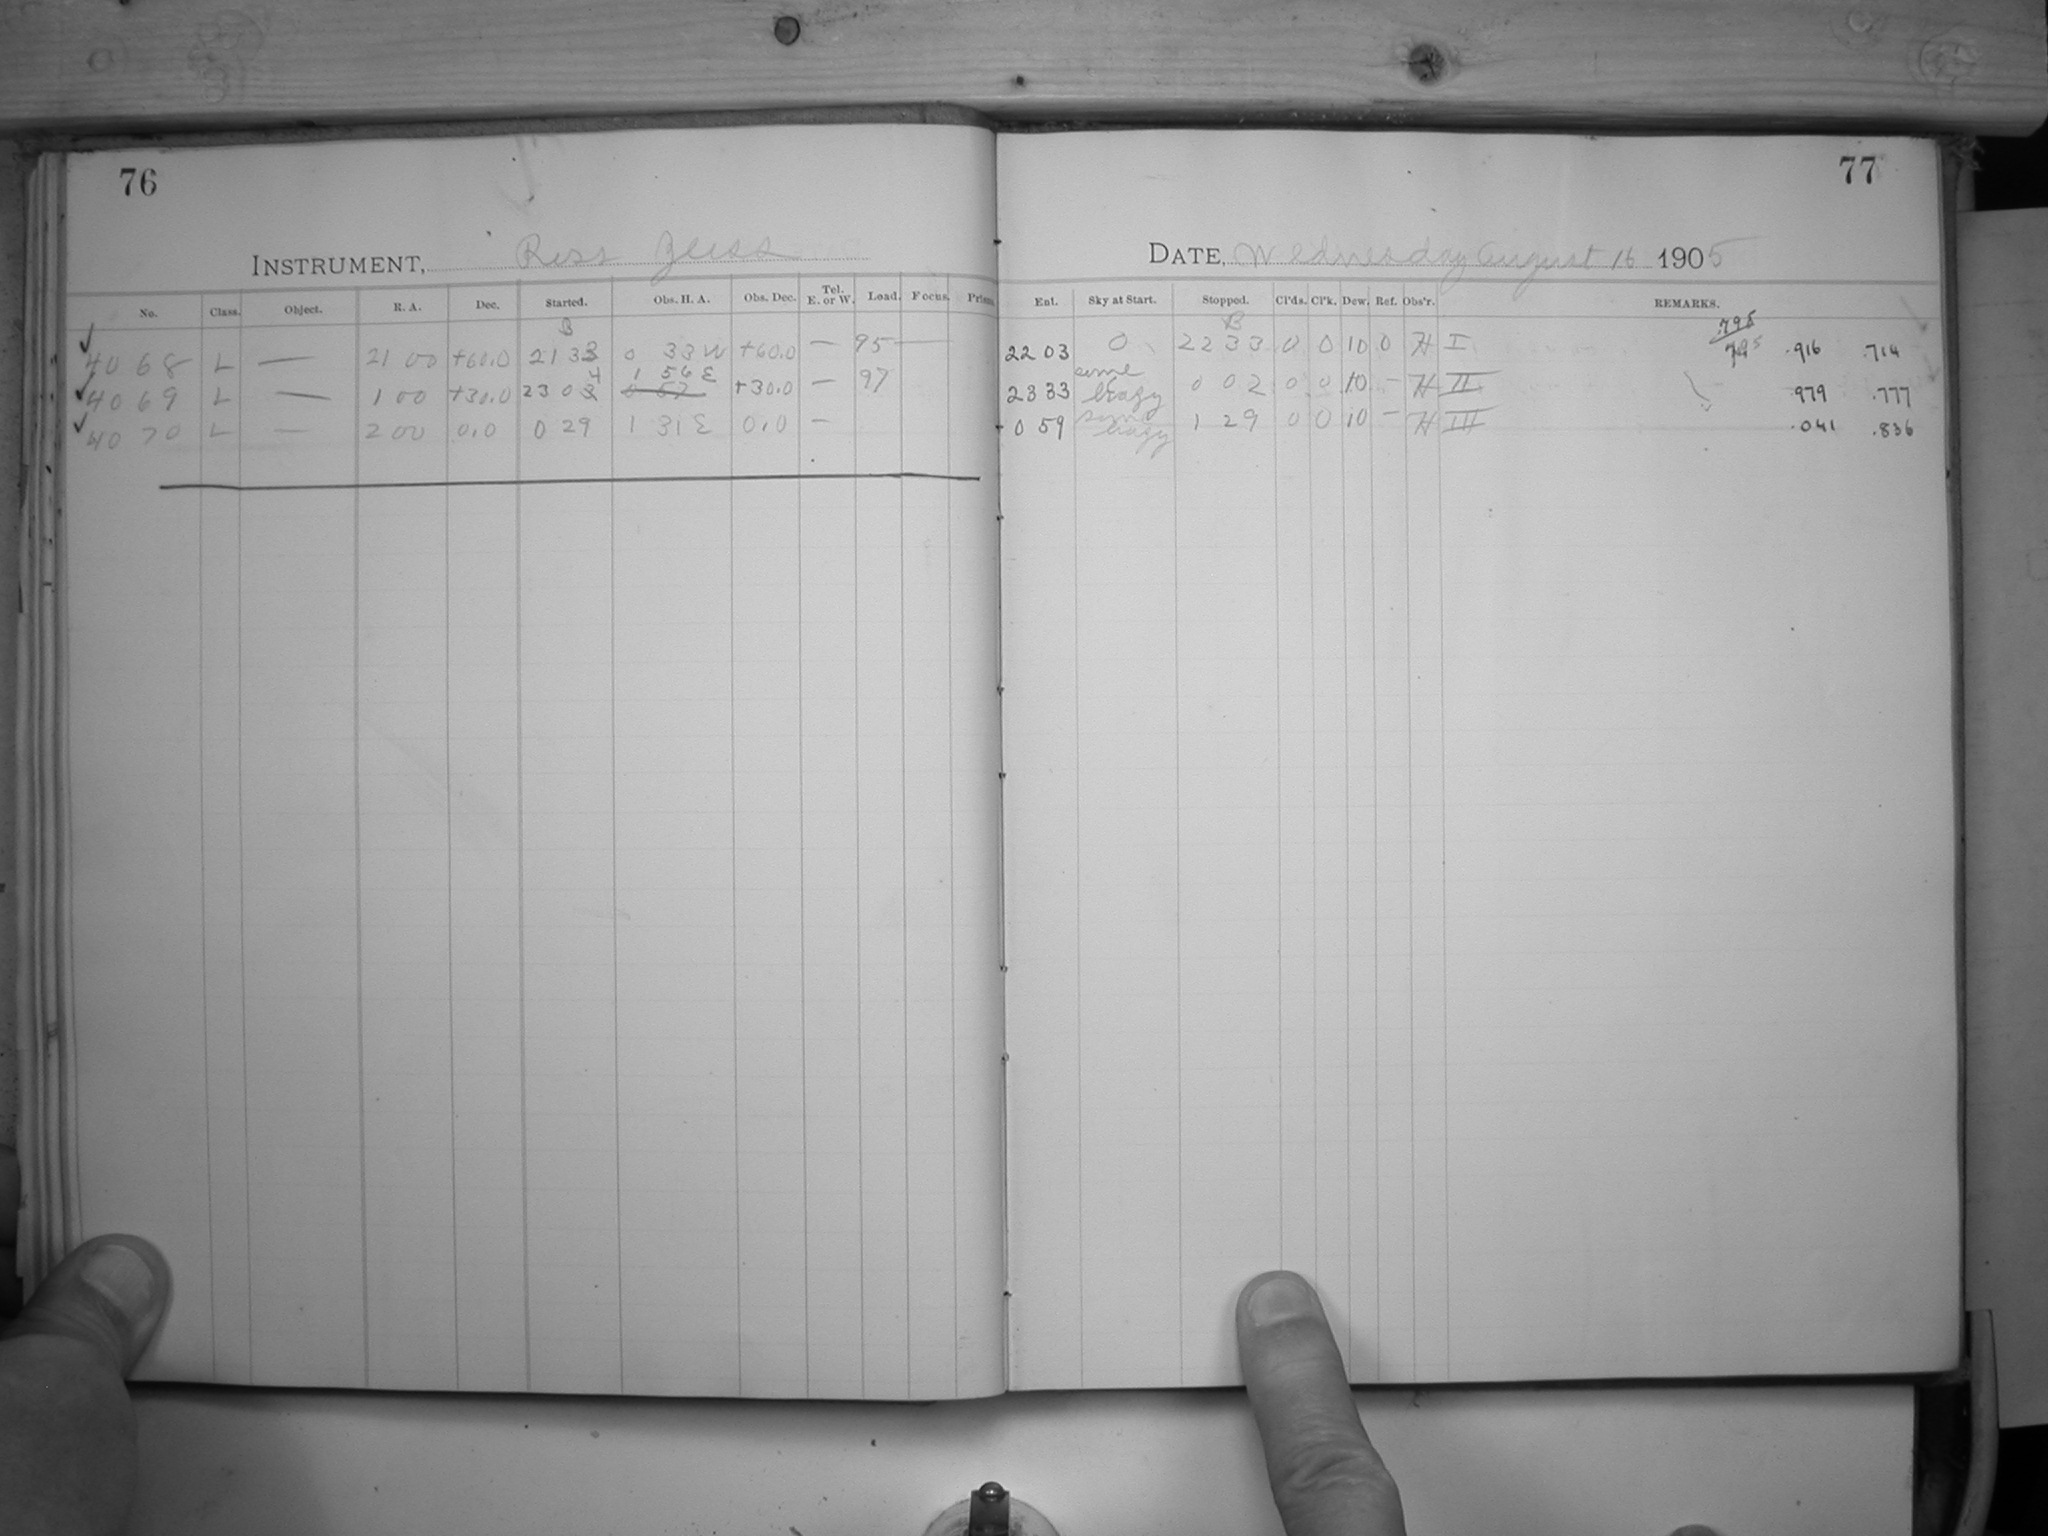 76
77
INSTRUMENT, Ross Zeiss
DATE, Wednesday August 16 1905
No. Class. Object. R. A. Dec. Started. Obs. H. A. Obs. Dec. Tel. E. or W. Load. Focus. Prism.
Ent. Sky at Start. Stopped. Cl'ds. Cl'k. Dew. Ref. Obs'r. REMARKS.
B
B
.798
✓ 4068 L — 21 00 +60.0 21 33 0 33 W +60.0 — 95 —
22 03 0 22 33 0 0 10 0 H I .916 .714
4 1 56 E
some
✓ 4069 L — 1 00 +30.0 23 03 0 57 +30.0 — 97
23 33 hazy 0 02 0 0 10 — H II .979 .777
✓ 4070 L — 2 00 0.0 0 29 1 31 E 0.0 —
0 59 some hazy 1 29 0 0 10 — H III .041 .836